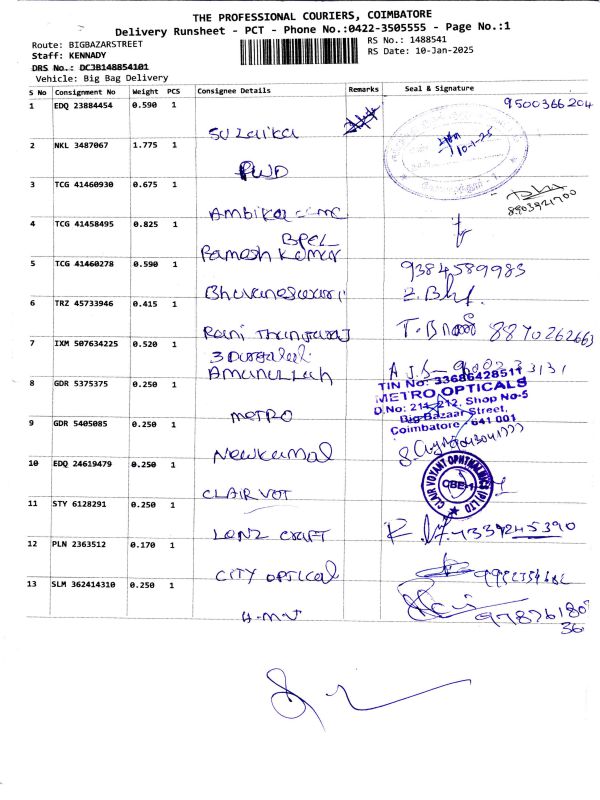 THE PROFESSIONAL COURIERS, COIMBATORE
Delivery Runsheet - PCT - Phone No.:0422-3505555 - Page No.:1
Route: BIGBAZARSTREET
RS No.: 1488541
Staff: KENNADY
RS Date: 10-Jan-2025
DRS No.: DC3B148854101
Vehicle: Big Bag Delivery
S No Consignment No Weight PCS Consignee Details Remarks Seal & Signature
1 EDQ 23884454 0.590 1 9500366204
Sulaika
10-1-25
2 NKL 3487067 1.775 1
PWD
3 TCG 41460930 0.675 1
8903921700
Ambika
4 TCG 41458495 0.825 1
BPCL
Ramesh Kumar
5 TCG 41460278 0.590 1 9384589983
Bhuvaneswari
6 TRZ 45733946 0.415 1
Rani Thangaraj T. 8870262663
7 IXM 507634225 0.520 1
Amanullah
8 GDR 5375375 0.250 1
TIN No: 33686428511
METRO OPTICALS
D.No: 211-212, Shop No-5
Big Bazaar Street,
Coimbatore - 641 001
METRO
9 GDR 5405085 0.250 1
New Kamal
10 EDQ 24619479 0.250 1
CLAIR VOYANT OPHTHALMICS (P) LTD
CBE-1
CLAIR VOT
11 STY 6128291 0.250 1
LENZ CRAFT
12 PLN 2363512 0.170 1
CITY OPTICAL
13 SLM 362414310 0.250 1
H.M.V